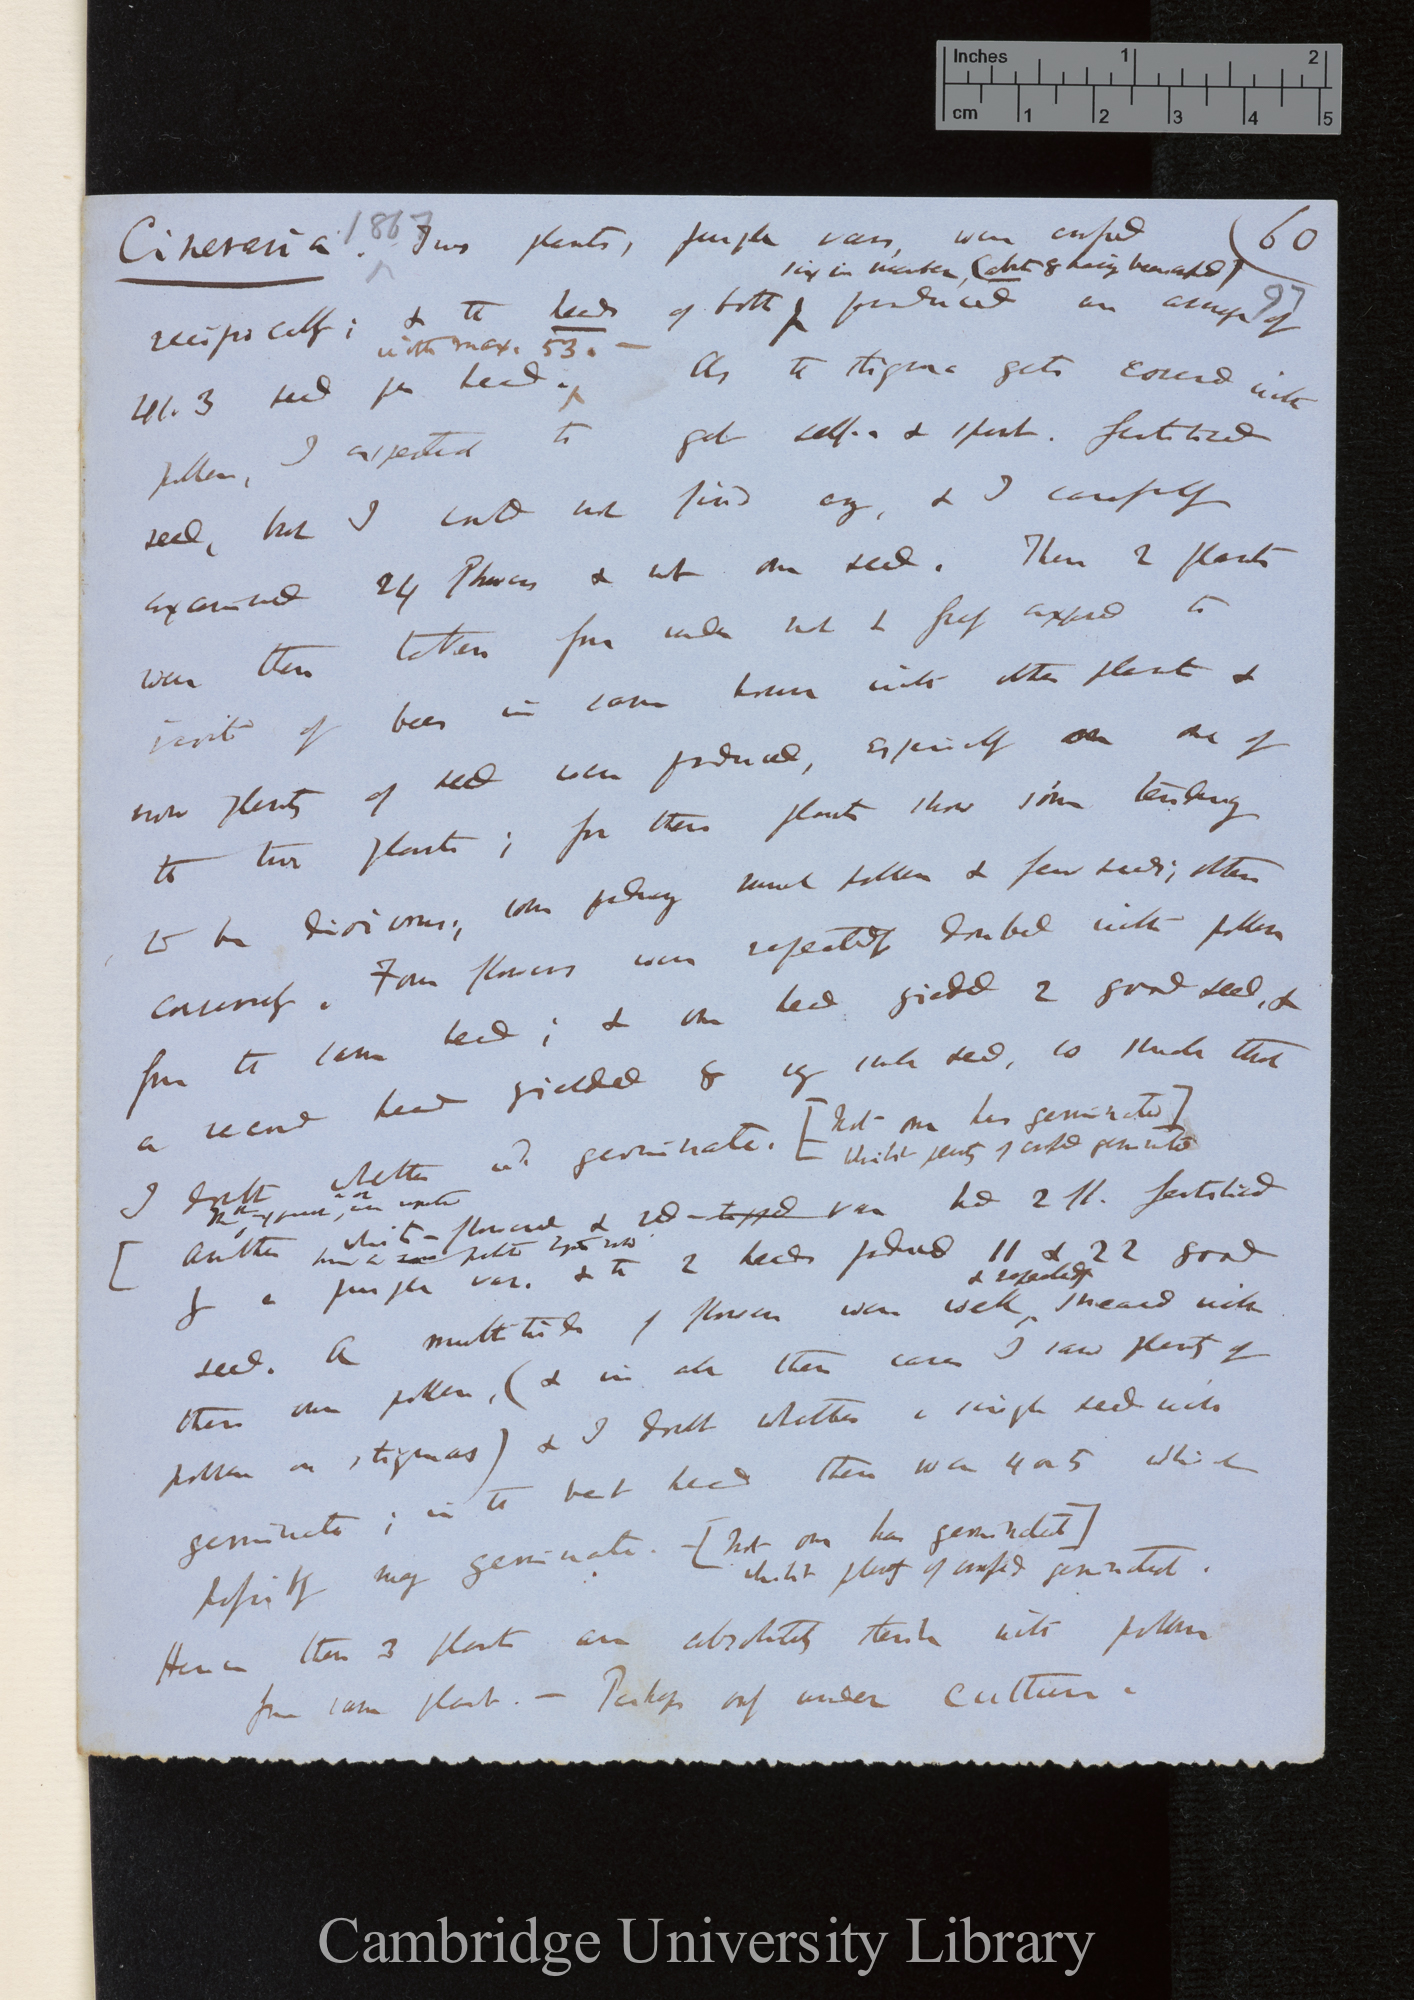 Inches 1 2
cm 1 2 3 4 5
(60
97
Cineraria. 1867 Two plants, purple vars, were crossed
six in number, (about 8 having been crossed)
reciprocally; & the heads of both produced an average of
with max. 53. —
41.3 seed per head. As the stigma gets covered with
pollen, I expected to get self- & spont. fertilised
seed, but I could not find any, & I carefully
examined 24 flowers & not one seed. These 2 plants
were then taken from under net & freely exposed to
visits of bees in same house with other plants &
now plenty of seed were produced, especially on one of
the two plants; for these plants show some tendency
to be dioicous; some producing much pollen & few seeds; others
conversely. Four flowers were repeatedly dusted with pollen
from the same head; & one head yielded 2 good seed, &
a second head yielded 8 seed, so that
I doubt whether will germinate. [Not one has germinated]
whilst plenty of crossed germinated
[Another white-flowered & red-tipped var. had 2 fl. fertilised
by a purple var. & the 2 heads produced 11 & 22 good
& repeatedly
seed. A multitude of flowers were well smeared with
their own pollen, (& in all these cases I saw plenty of
pollen on stigmas) & I doubt whether a single seed will
germinate; in the best head there were 4 or 5 which
possibly may germinate. —[Not one has germinated]
whilst plenty of crossed germinated.
Hence these 3 plants are absolutely sterile with pollen
from same plant. — Perhaps only under culture.
Cambridge University Library